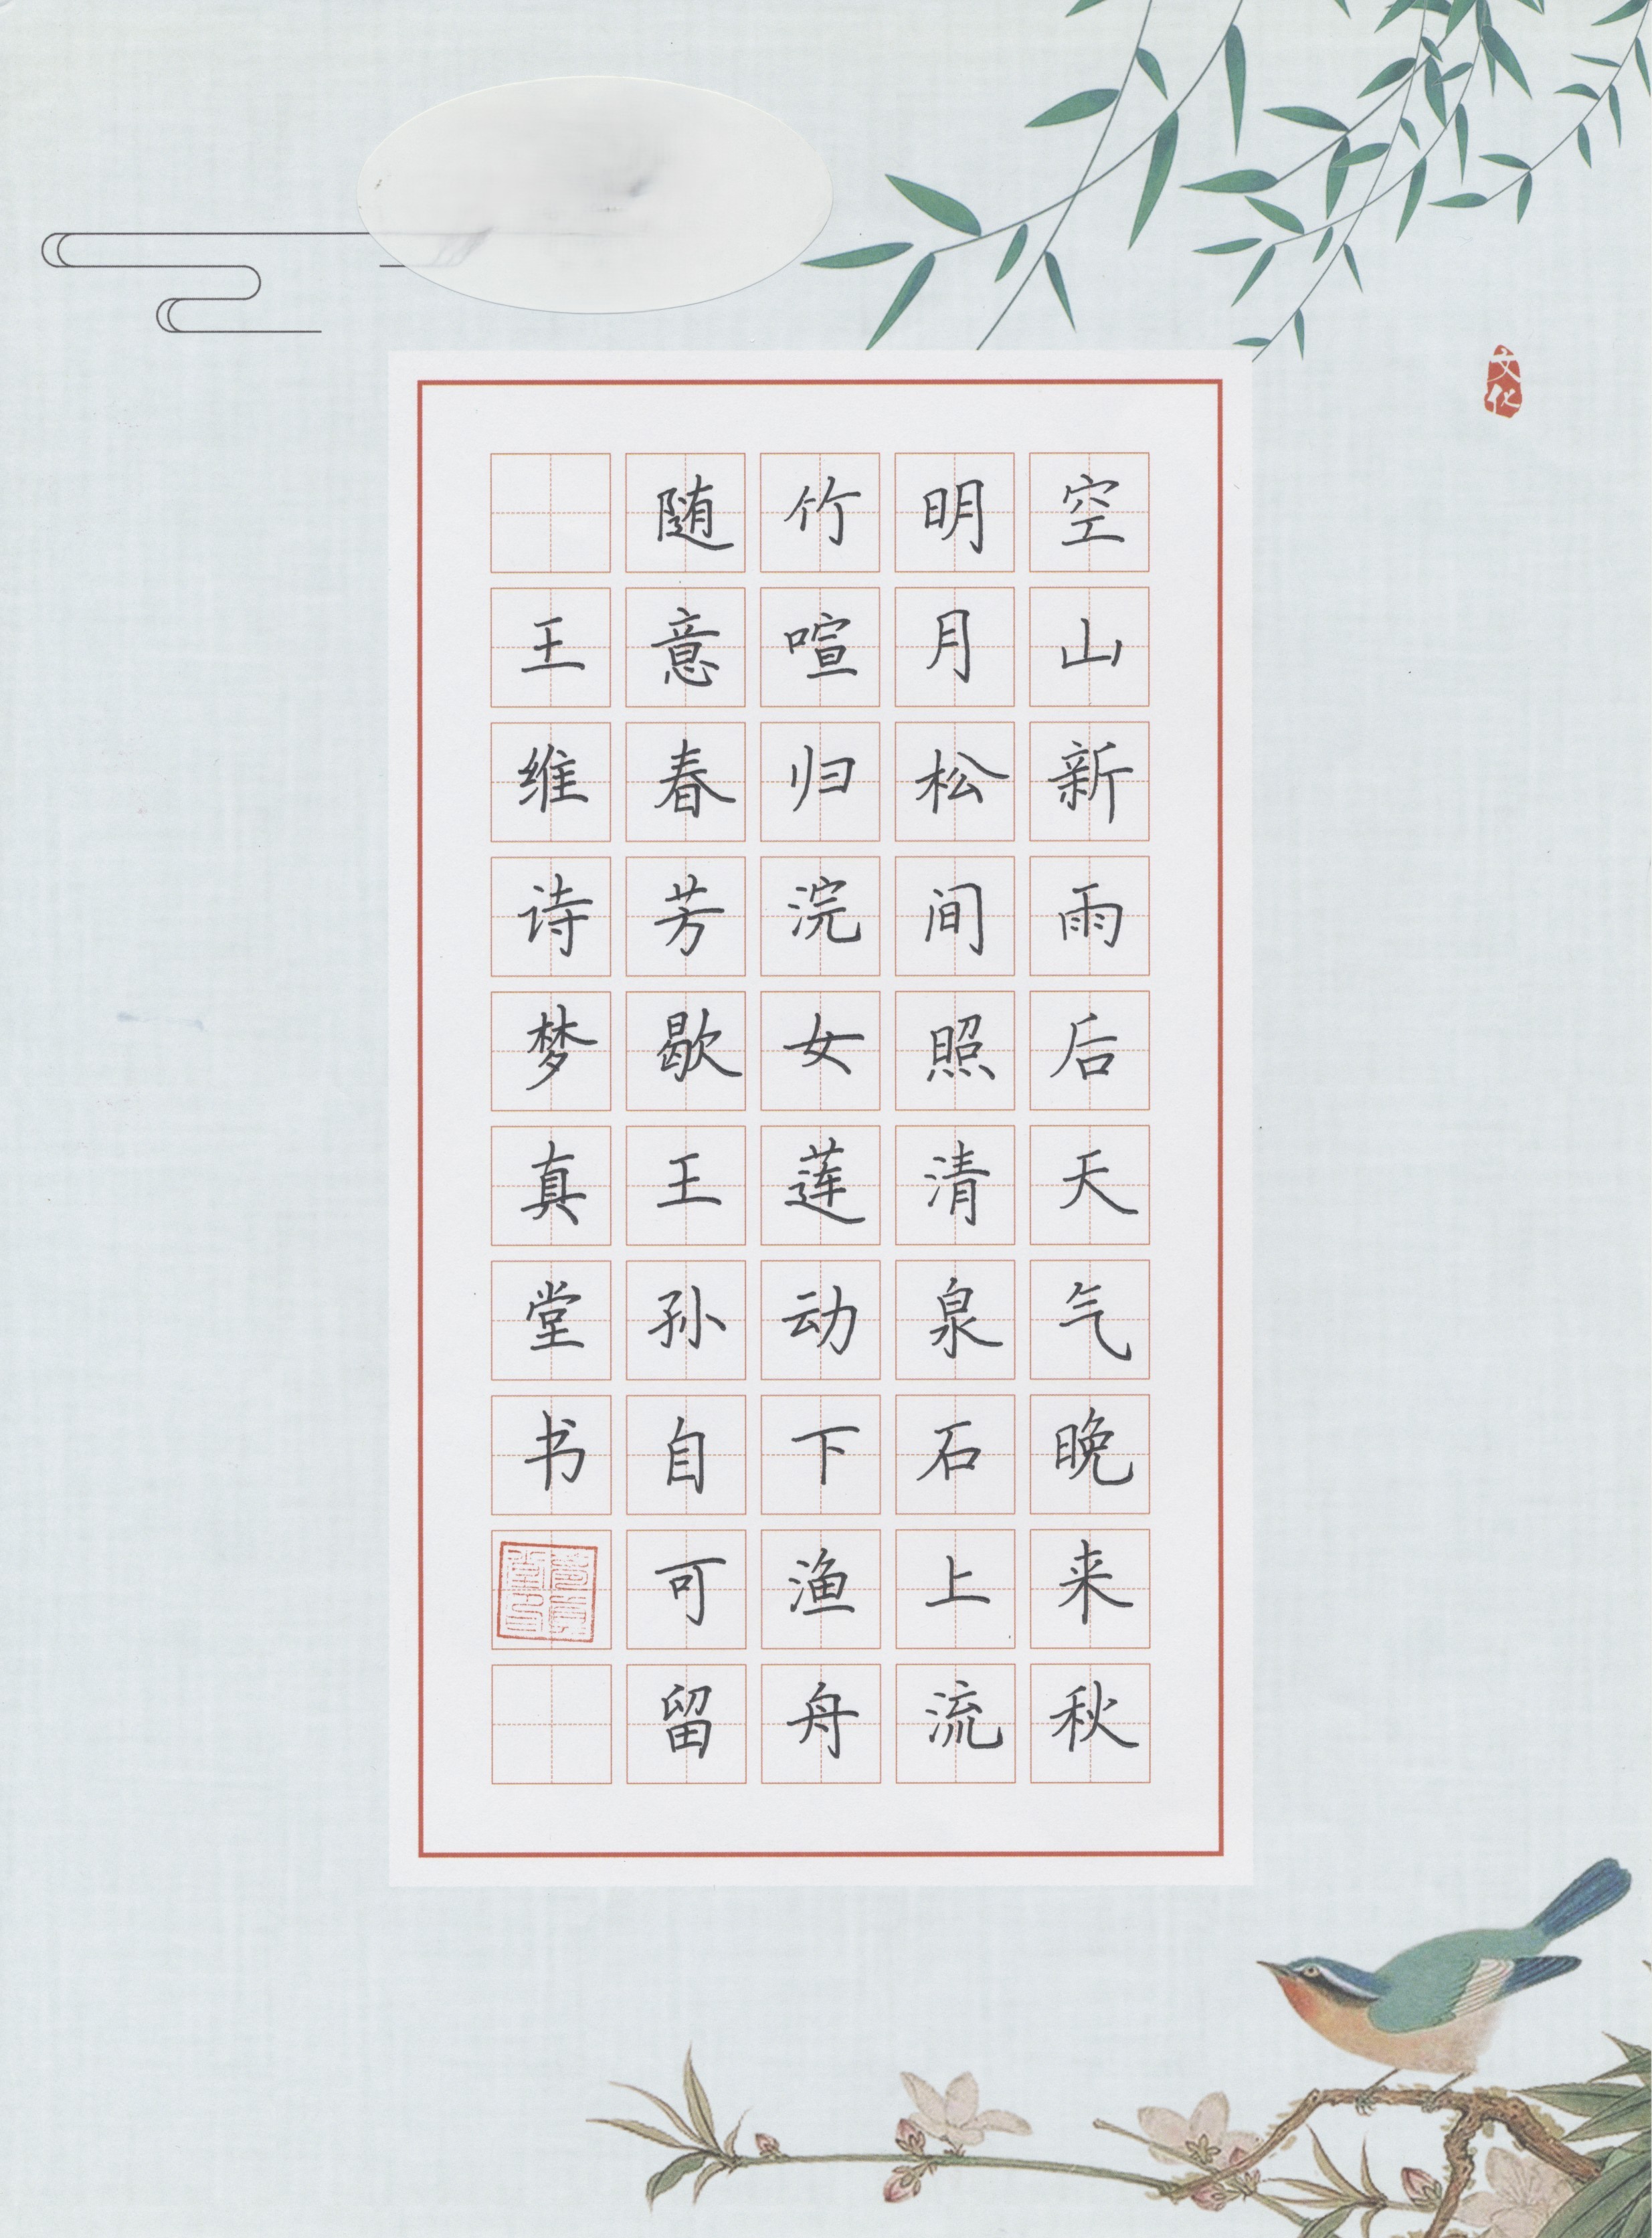 空山新雨后天气晚来秋
明月松间照清泉石上流
竹喧归浣女莲动下渔舟
随意春芳歇王孙自可留
王维诗梦真堂书
文化